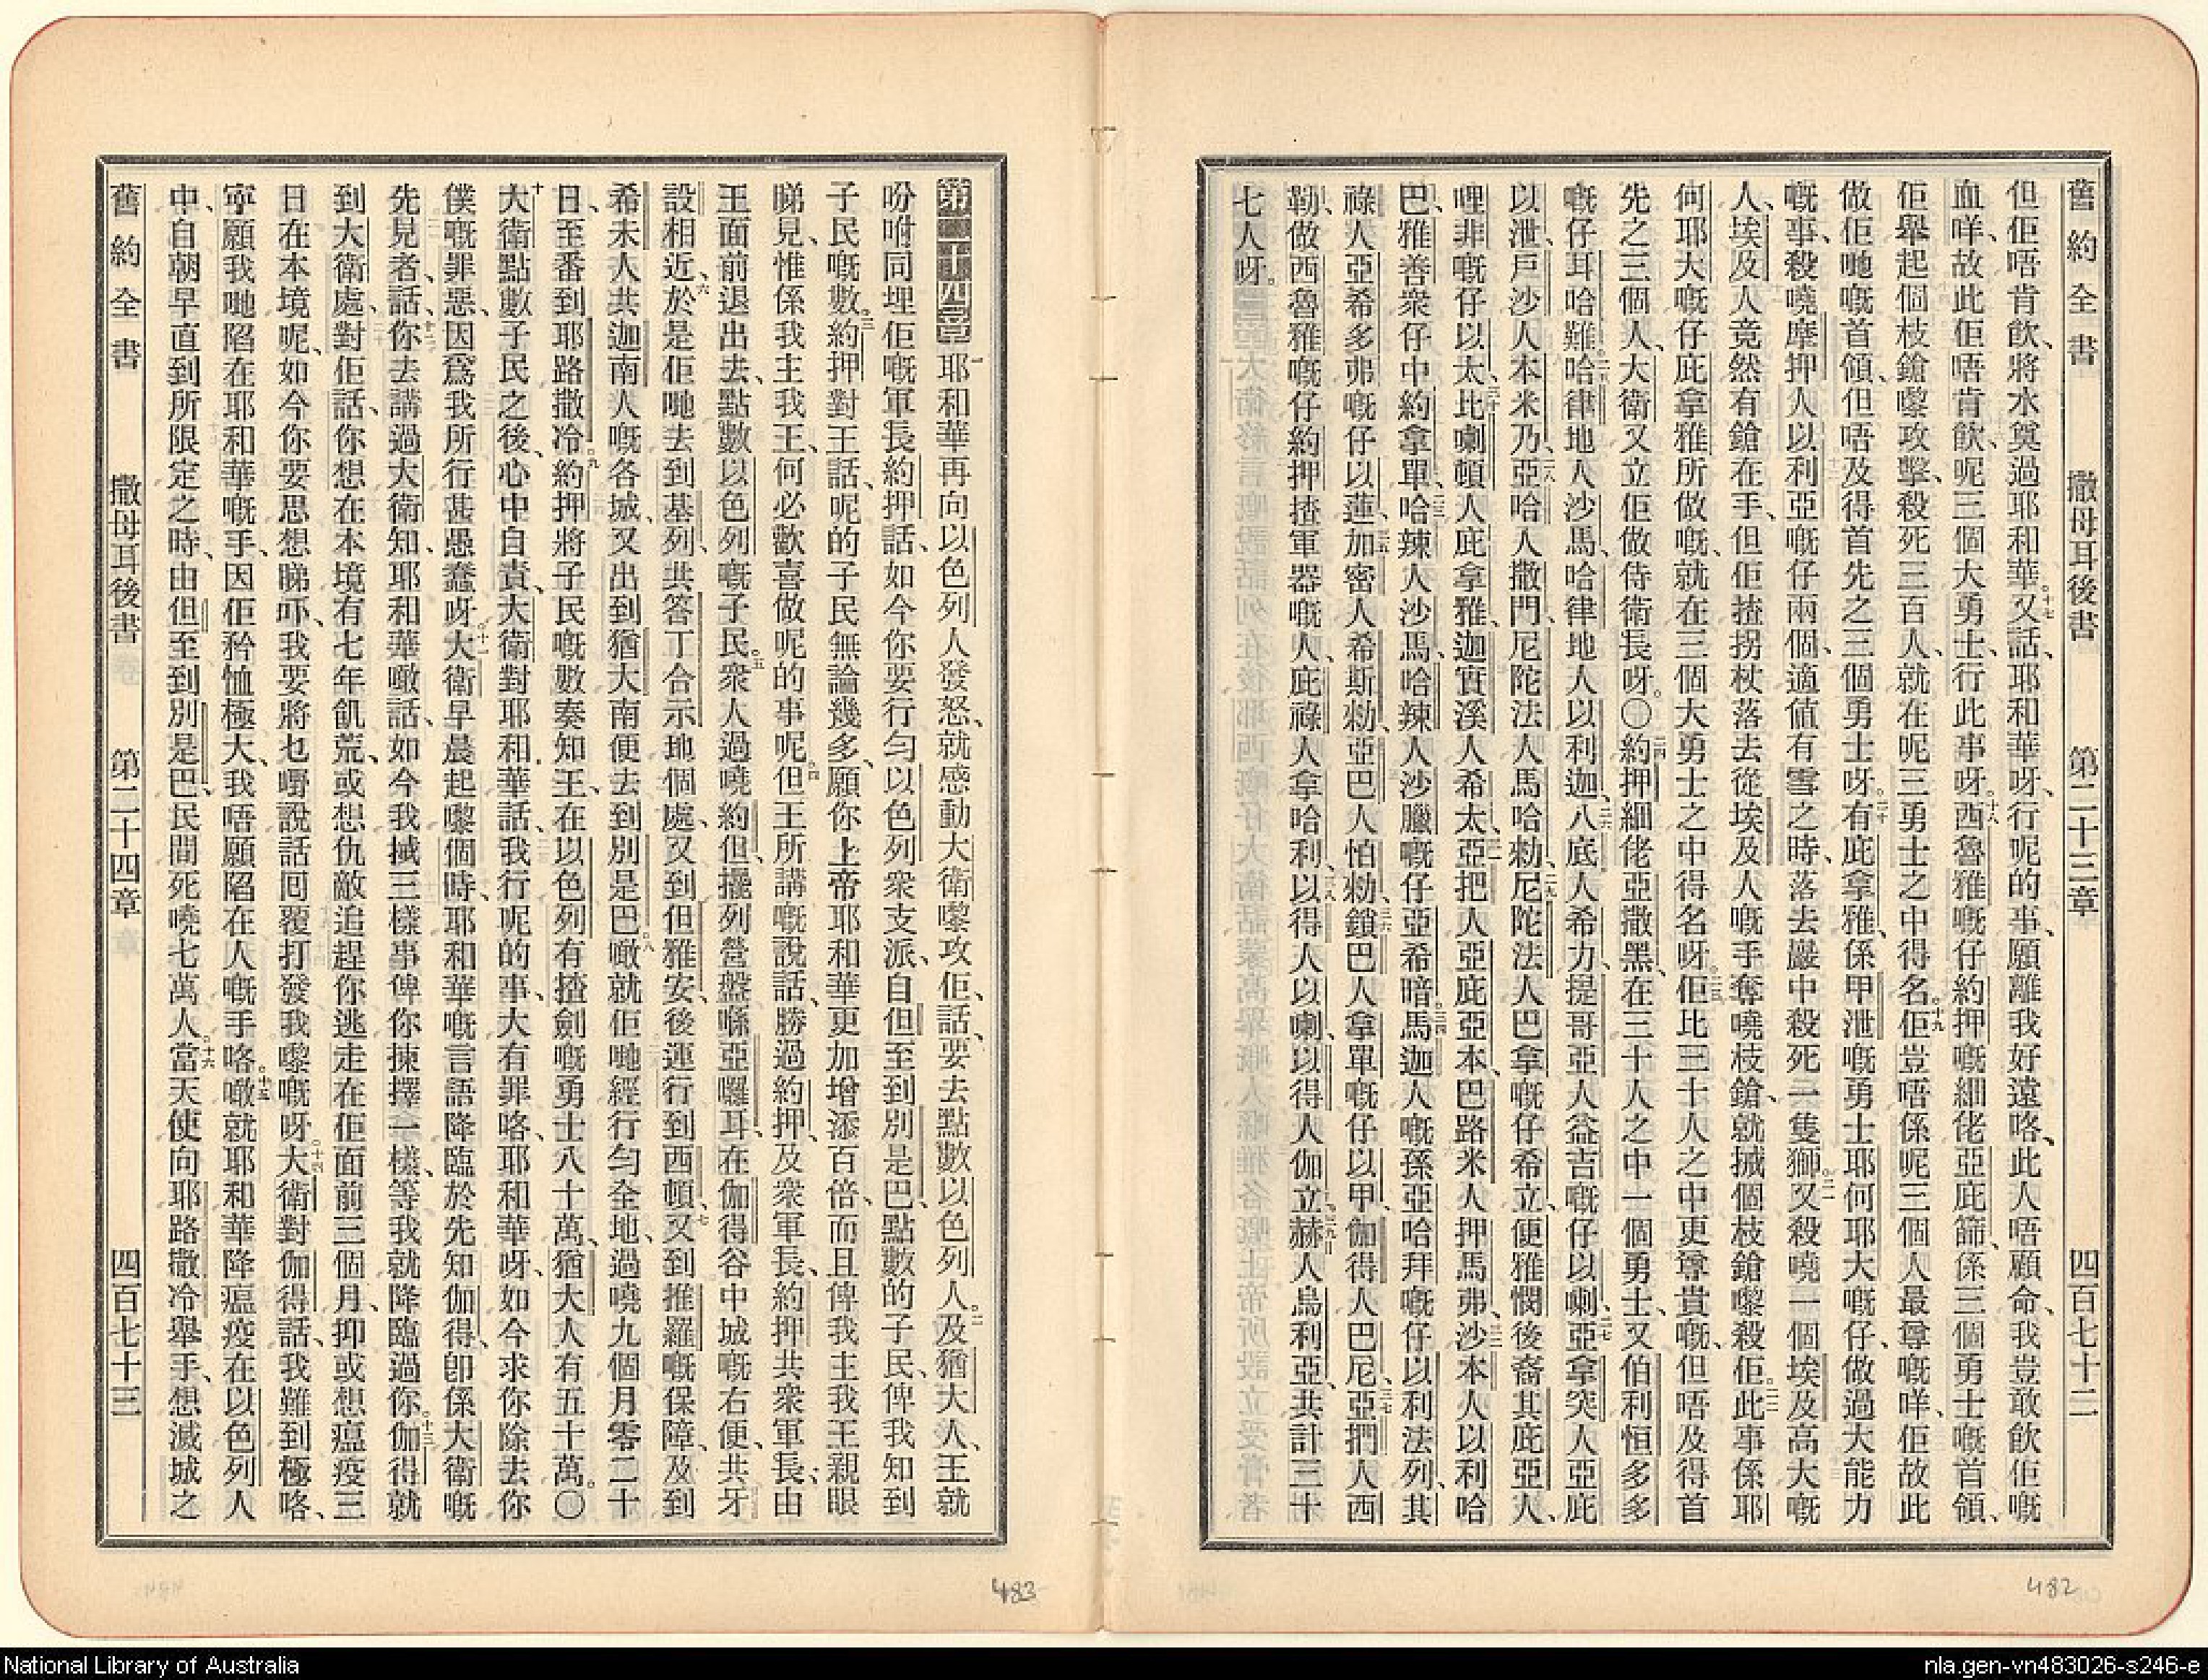 舊約全書 撒母耳後書 第二十三章 四百七十二
但佢唔肯飲、將水奠過耶和華。十七又話、耶和華呀、行呢的事、願離我好遠咯、此人唔顧命、我豈敢飲佢嘅
血咩、故此佢唔肯飲、呢三個大勇士、行此事呀。十八西魯雅嘅仔約押嘅細佬亞庇篩、係三個勇士嘅首領、
佢舉起個枝鎗嚟攻擊、殺死三百人、就在呢三勇士之中得名。十九佢豈唔係呢三個人最尊嘅咩、佢故此
做佢哋嘅首領、但唔及得首先之三個勇士呀。二十有庇拿雅、係甲泄嘅勇士耶何耶大嘅仔、做過大能力
嘅事、殺嘵摩押人以利亞嘅仔兩個、適值有雪之時、落去巖中殺死一隻獅。二一又殺嘵一個埃及高大嘅
人、埃及人竟然有鎗在手、但佢揸拐杖落去、從埃及人嘅手奪嘵枝鎗、就搣個枝鎗嚟殺佢。二二此事係耶
何耶大嘅仔庇拿雅所做嘅、就在三個大勇士之中得名呀。二三佢比三十人之中更尊貴嘅、但唔及得首
先之三個人、大衛又立佢做侍衛長呀。〇二四約押細佬亞撒黑、在三十人之中一個勇士、又伯利恒多多
嘅仔耳哈難。二五哈律地人沙馬、哈律地人以利迦、二六八底人希力、提哥亞人益吉嘅仔以喇、二七亞拿突人亞庇
以泄、戶沙人本米乃、二八亞哈人撒門、尼陀法人馬哈勑、二九尼陀法人巴拿嘅仔希立、便雅憫後裔其庇亞人、
哩非嘅仔以太、三十比喇頓人庇拿雅、迦實溪人希太、三一亞把人亞庇亞本、巴路米人押馬弗、三二沙本人以利哈
巴、雅善衆仔中約拿單、三三哈辣人沙馬、哈辣人沙臘嘅仔亞希暗。三四馬迦人嘅孫亞哈拜嘅仔以利法列、其
祿人亞希多弗嘅仔以蓮、三五加密人希斯勑、亞巴人怕勑、三六鎖巴人拿單嘅仔以甲、伽得人巴尼、三七亞捫人西
勒、做西魯雅嘅仔約押揸軍器嘅人、庇祿人拿哈利、三八以得人以喇、以得人伽立、三九赫人烏利亞、共計三十
七人呀。
第二十四章 一耶和華再向以色列人發怒、就感動大衛嚟攻佢、話、要去點數以色列人。二及猶大人、王就
吩咐同埋佢嘅軍長約押話、如今你要行勻以色列衆支派、自但至到別是巴、點數的子民、俾我知到
子民嘅數。三約押對王話、呢的子民無論幾多、願你上帝耶和華更加增添百倍、而且俾我主我王親眼
睇見、惟係我主我王、何必歡喜做呢的事呢。四但王所講嘅說話、勝過約押、及衆軍長、約押共衆軍長、由
王面前退出去、點數以色列嘅子民。五衆人過嘵約但、擺列營盤喺亞囉耳、在伽得谷中城嘅右便、共牙
設相近、六於是佢哋去到基列、共答丁合示地個處、又到但雅安、後運行到西頓、七又到推羅嘅保障、及到
希未人共迦南人嘅各城、又出到猶大南便、去到別是巴。八噉就佢哋經行勻全地、過嘵九個月零二十
日、至番到耶路撒冷。九約押將子民嘅數奏知王、在以色列有揸劍嘅勇士八十萬、猶大人有五十萬。〇
十大衛點數子民之後、心中自責、大衛對耶和華話、我行呢的事、大有罪咯、耶和華呀、如今求你除去你
僕嘅罪惡、因爲我所行甚愚蠢呀。十一大衛早晨起嚟個時、耶和華嘅言語降臨於先知伽得、卽係大衛嘅
先見者、話、十二你去講過大衛知、耶和華噉話、如今我搣三樣事俾你揀擇一樣、等我就降臨過你。十三伽得就
到大衛處、對佢話、你想在本境有七年飢荒、或想仇敵追趕你逃走在佢面前三個月、抑或想瘟疫三
日在本境呢、如今你要思想睇吓、我要將乜嘢說話囘覆打發我嚟嘅呀。十四大衛對伽得話、我難到極咯、
寧願我哋陷在耶和華嘅手、因佢矜恤極大、我唔願陷在人嘅手咯。十五噉就耶和華降瘟疫在以色列人
中、自朝早直到所限定之時、由但至到別是巴、民間死嘵七萬人。十六當天使向耶路撒冷舉手、想滅城之
舊約全書 撒母耳後書 第二十四章 四百七十三
483
482
National Library of Australia
nla.gen-vn483026-s246-e